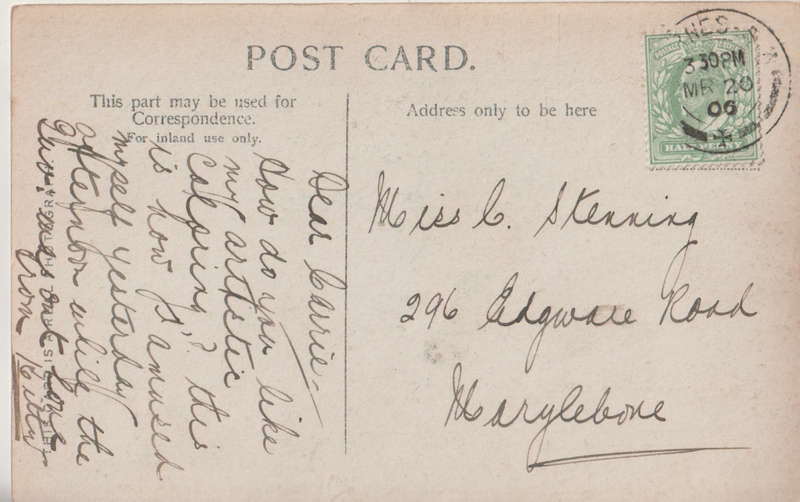 POST CARD.
This part may be used for
Correspondence.
For inland use only.
Address only to be here
330PM
MR 20
06
HALFPENNY
Dear Carrie -
How do you like
my artistic
coloring? this
is how I amused
myself yesterday
afternoon while the
two were out love
from Kitty
Miss C. Stenning
296 Edgware Road
Marylebone